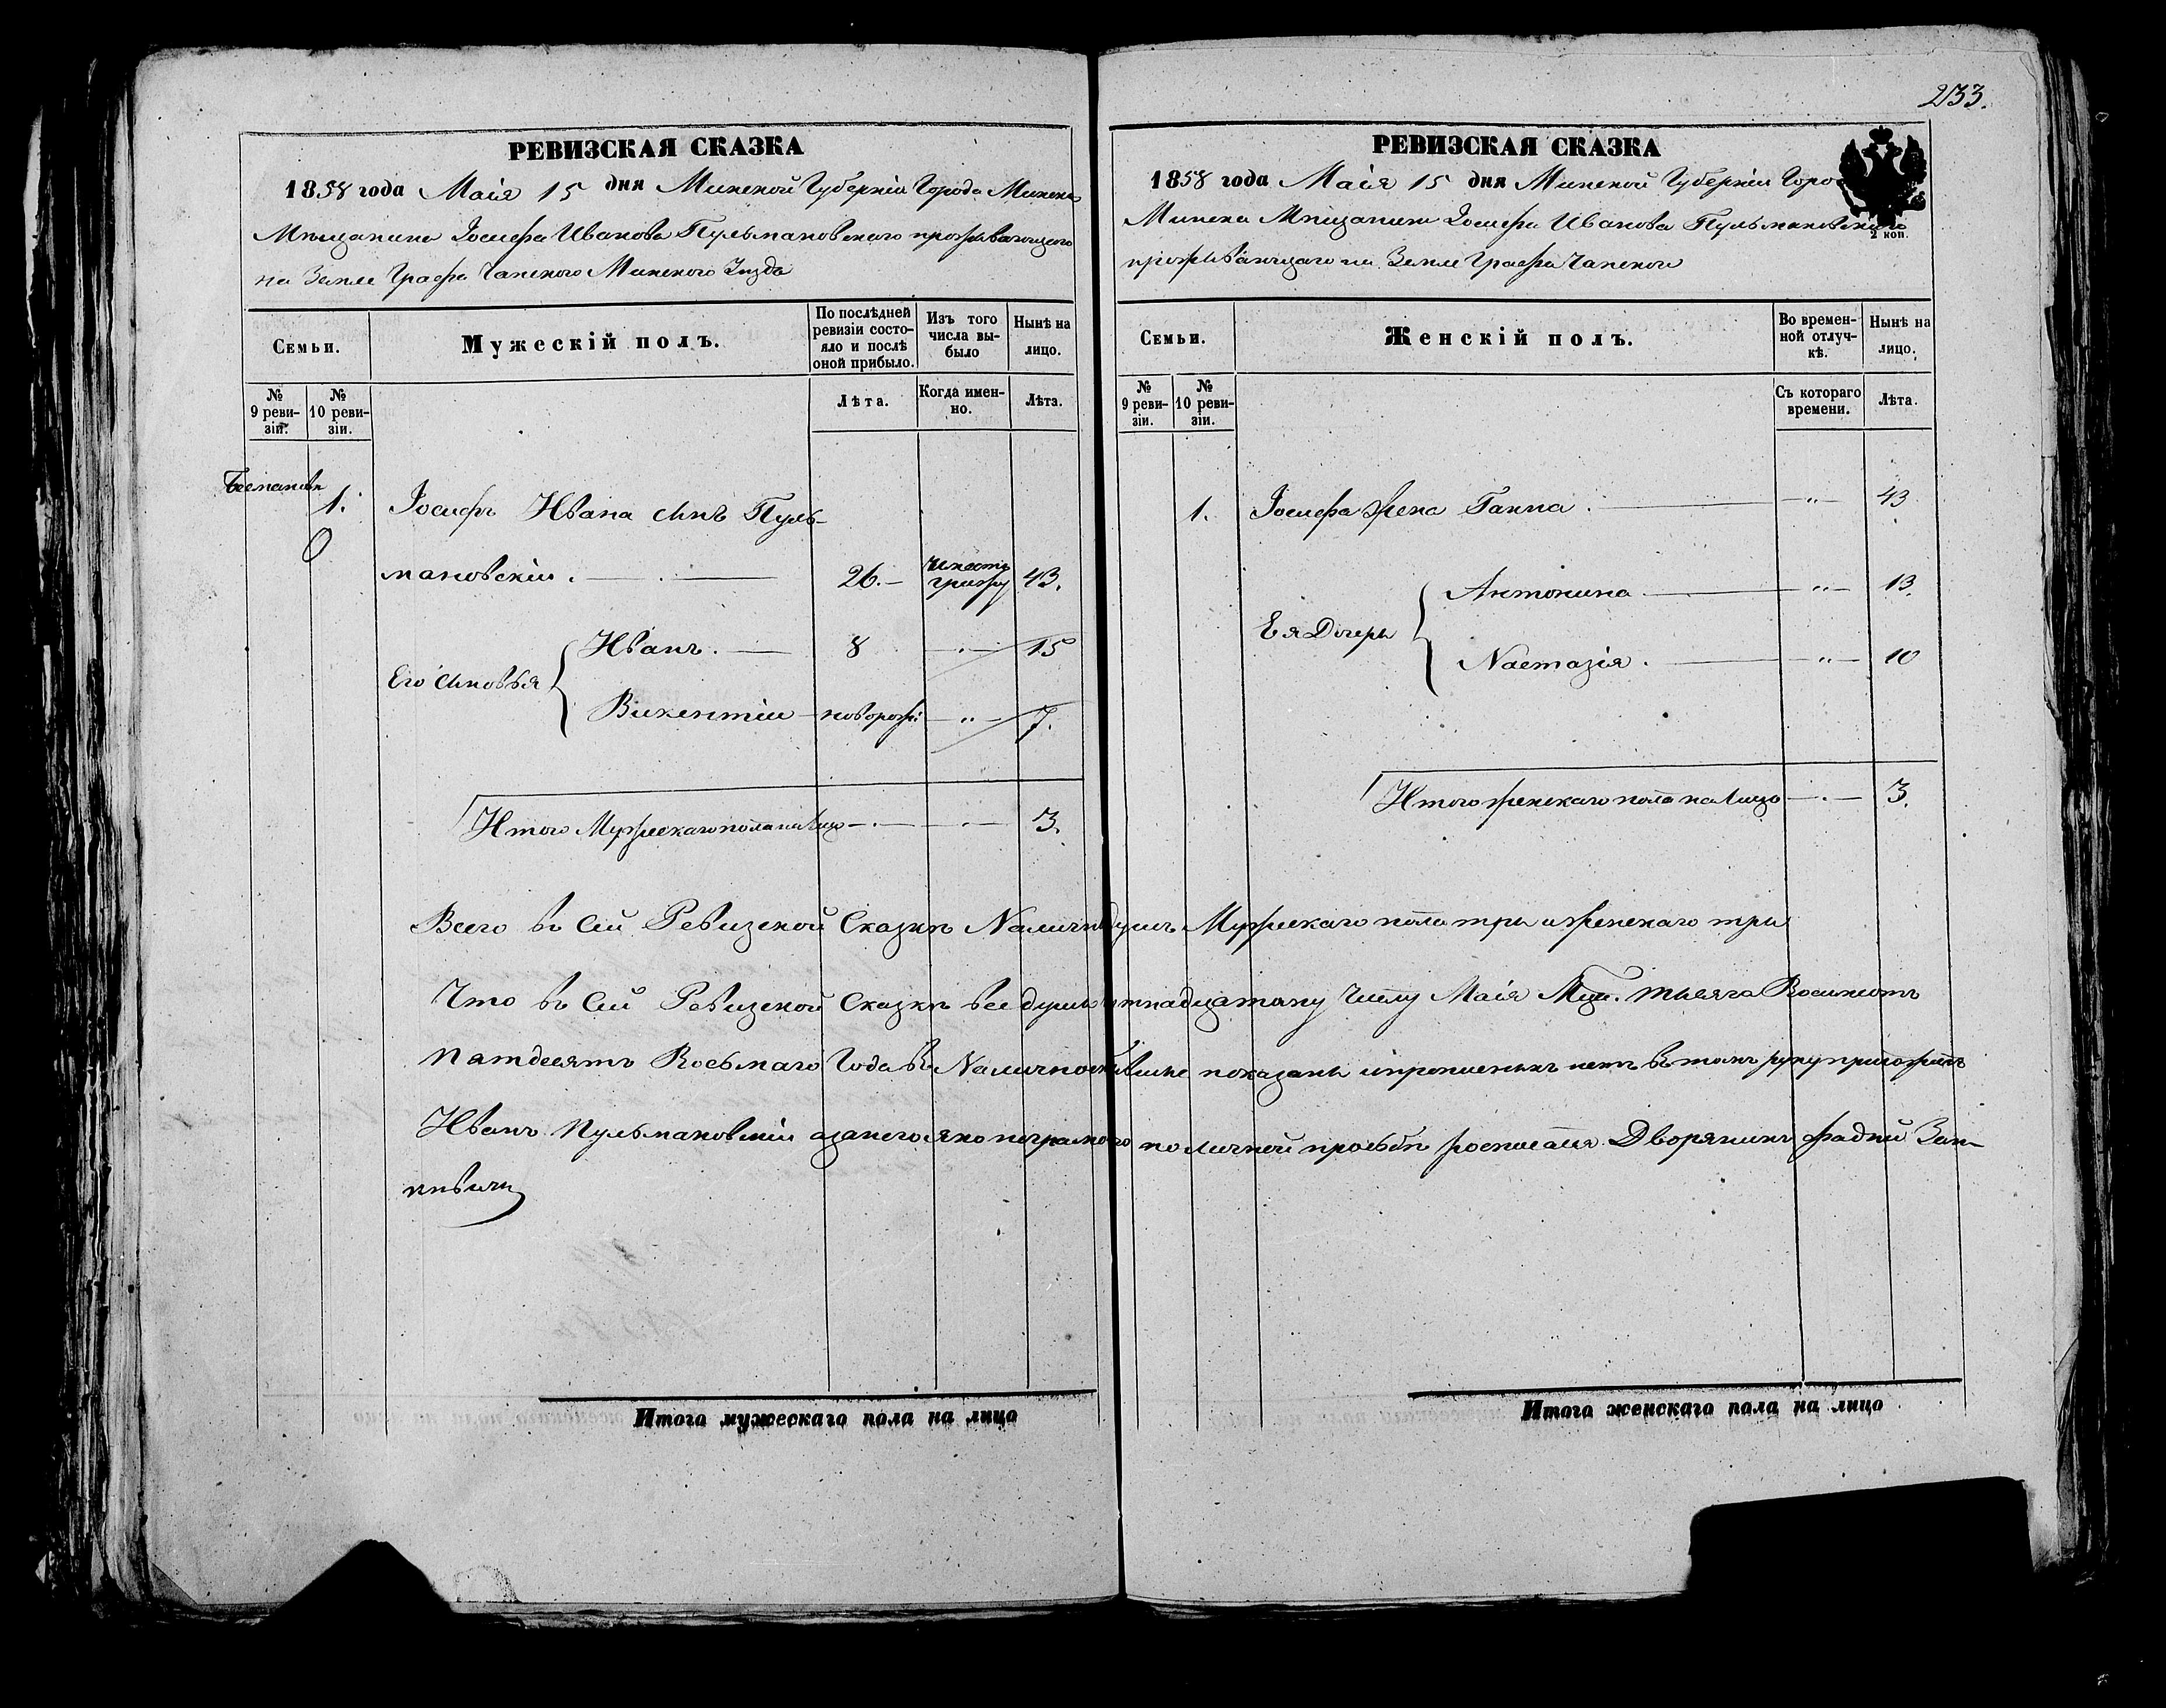 233.
РЕВИЗСКАЯ СКАЗКА
1858 года Маія 15 дня Минской Губерніи Города Минска
Мѣщанина Іосифа Иванова Пульмановскаго проживающаго
на Земле Графа Чапскаго Минскаго Уѣзда
Семьи.
Мужескій полъ.
По послѣдней ревизіи состояло и послѣ оной прибыло.
Изъ того числа выбыло
Нынѣ на лицо.
№ 9 ревизіи.
№ 10 ревизіи.
Лѣта.
Когда именно.
Лѣта.
1. Іосифъ Ивана сынъ Пуль-
мановскій. 26. 43.
Его сыновья
Иванъ. 8 15
Викентій новорож: 7.
Итого Мужескаго пола на лицо 3.
РЕВИЗСКАЯ СКАЗКА
1858 года Маія 15 дня Минской Губерніи
Минска Мѣщанина Іосифа Иванова Пульмановскаго
2 коп.
проживающаго на Земле Графа Чапскаго
Семьи.
Женскій полъ.
Во временной отлучкѣ.
Нынѣ на лицо.
№ 9 ревизіи.
№ 10 ревизіи.
Съ котораго времени.
Лѣта.
1. Іосифа жена Ганна. " 43
Ея Дочери
Антонина " 13.
Настазія. " 10
Итого женскаго пола на Лицо 3.
Всего въ сей Ревизской Сказкѣ Налично душъ Мужескаго пола три и женскаго три
Что въ сей Ревизской Сказкѣ все души Числу Маія тысяча Восимсотъ
Патдесятъ Восьмаго Года въ показаны и прописныхъ нетъ въ томъ руку приложилъ
Иванъ Пульмановскій а за него яко неграмотного по личной прозьбѣ росписался Дворянинъ
Итого мужескаго пола на лицо
Итого женскаго пола на лицо